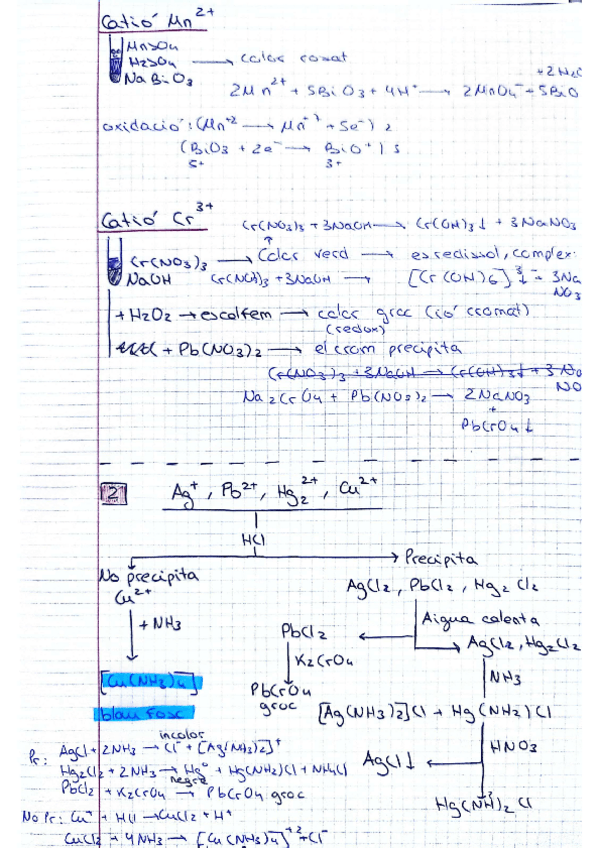 Catió Mn2+
MnSO4
H2SO4 → color rosat
NaBiO3
+2H2O
2Mn2+ + 5BiO3 + 4H+ → 2MnO4- + 5BiO
oxidació: (Mn+2 → Mn+7 + 5e-) 2
(BiO3 + 2e- → BiO+) 5
5+ 3+
Catió Cr3+
Cr(NO3)3 + 3NaOH → Cr(OH)3↓ + 3NaNO3
Cr(NO3)3 → Color verd → es redissol, complex:
NaOH Cr(NOH)3 + 3NaOH → [Cr(OH)6]3-↓ - 3Na
NO3
+ H2O2 → escalfem → color groc (ió cromat)
(redox)
+ Pb(NO3)2 → el crom precipita
Cr(NO3)3 + 3NaOH → Cr(OH)3↓ + 3 Na
NO
Na2CrO4 + Pb(NO3)2 → 2NaNO3
+
PbCrO4↓
2 Ag+, Pb2+, Hg2 2+, Cu2+
HCl
No precipita Precipita
Cu2+ AgCl2, PbCl2, Hg2Cl2
+ NH3 Aigua calenta
PbCl2 AgCl2, Hg2Cl2
K2CrO4 NH3
[Cu(NH3)4] PbCrO4
groc [Ag(NH3)2]Cl + Hg(NH2)Cl
blau fosc
HNO3
incolor
Pr: AgCl + 2NH3 → Cl- + [Ag(NH3)2]+ AgCl↓
Hg2Cl2 + 2NH3 → Hg0 + Hg(NH2)Cl + NH4Cl
negre
PbCl2 + K2CrO4 → PbCrO4 groc Hg(NH)2Cl
No Pr: Cu+ + HCl → CuCl2 + H+
CuCl2 + 4NH3 → [Cu(NH3)4]+2 + Cl-